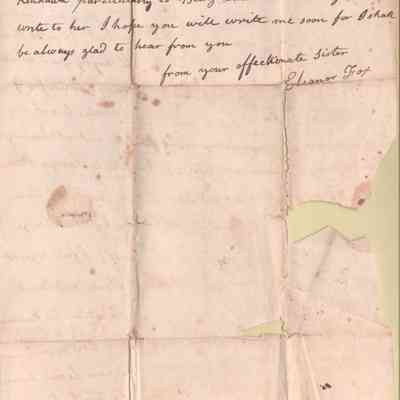 particularly to
write to her I hope you will write me soon for I shall
be always glad to hear from you
from your affectionate Sister
Eleanor Fox